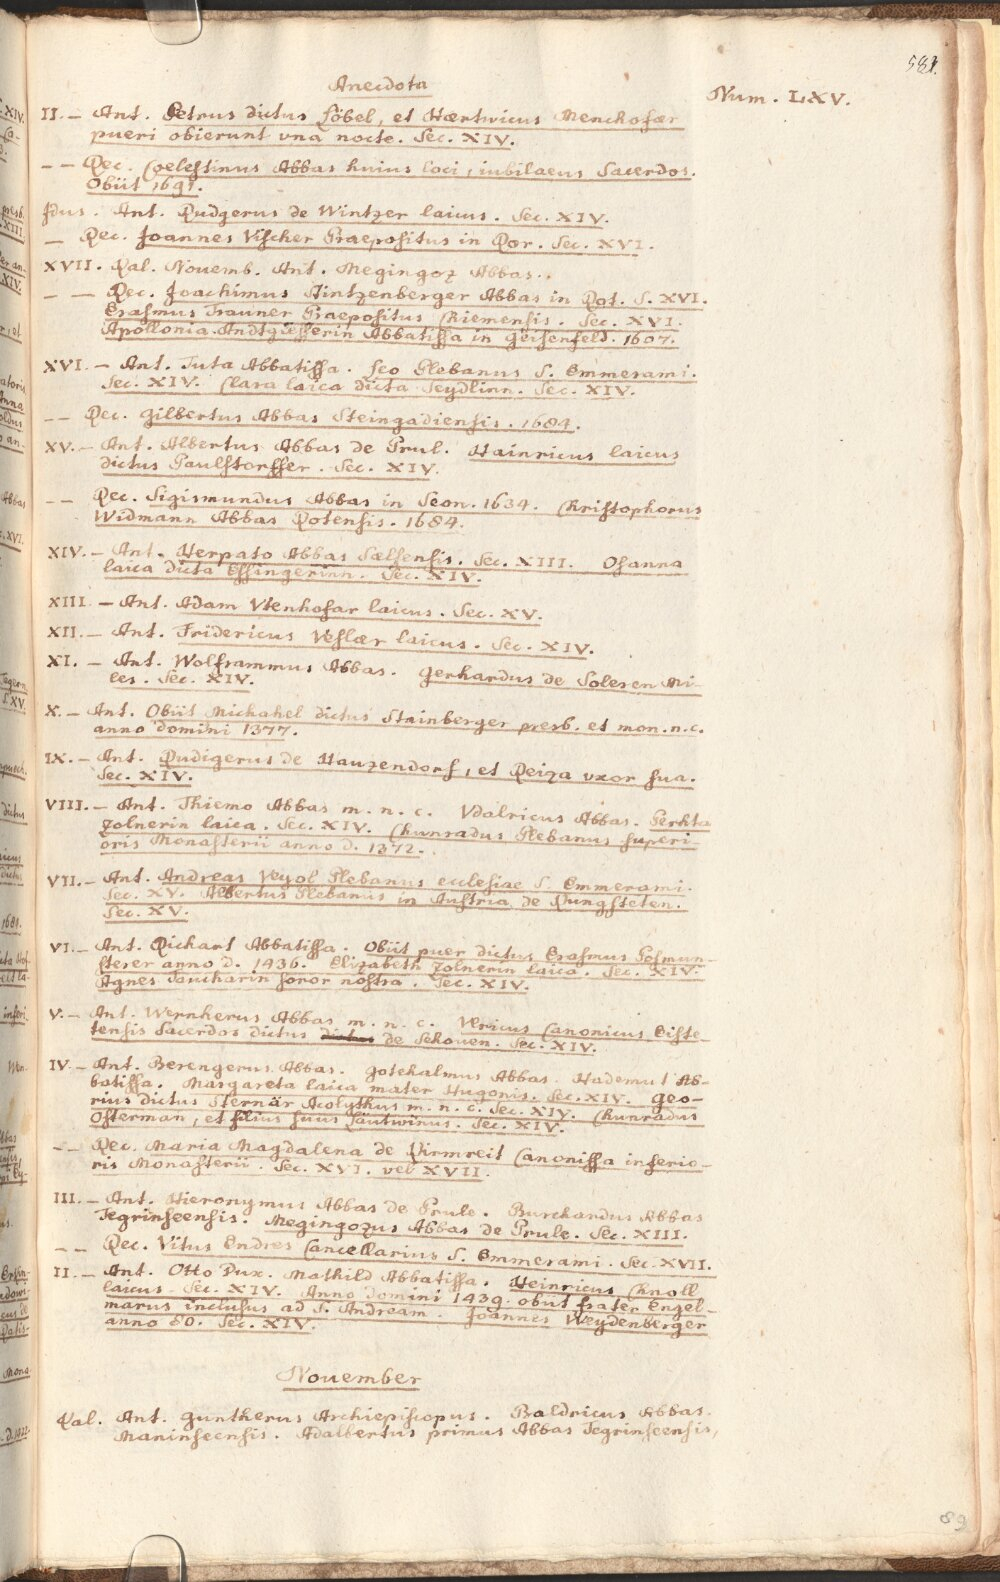 581.
Anecdota
Num. LXV.
II. — Ant. Petrus dictus Löbel, et Hærtwicus Menckofær
pueri obierunt vna nocte. Sec. XIV.
— — Rec. Coelestinus Abbas huius loci, iubilaeus Sacerdos.
Obiit 1691.
Idus. Ant. Rudgerus de Wintzer laicus. Sec. XIV.
— Rec. Joannes Vischer Praepositus in Ror. Sec. XVI.
XVII. Kal. Nouemb. Ant. Megingoz Abbas.
— — Rec. Joachimus Hintzenberger Abbas in Rot. S. XVI.
Erasmus Trauner Praepositus Chiemensis. Sec. XVI.
Apollonia Abbatissa in Geisenfeld. 1607.
XVI. — Ant. Tuta Abbatissa. Leo Plebanus S. Emmerami.
Sec. XIV. Clara laica dicta Seydlinn. Sec. XIV.
— — Rec. Gilbertus Abbas Steingadiensis. 1684.
XV. — Ant. Albertus Abbas de Prul. Hainricus laicus
dictus Paulstorffer. Sec. XIV.
— — Rec. Sigismundus Abbas in Seon. 1634. Christophorus
Widmann Abbas Rotensis. 1684.
XIV. — Ant. Herpato Abbas Sælsensis. Sec. XIII. Osanna
laica dicta Essingerinn. Sec. XIV.
XIII. — Ant. Adam Vtenhofar laicus. Sec. XV.
XII. — Ant. Fridericus Veslær laicus. Sec. XIV.
XI. — Ant. Wolframmus Abbas. Gerhardus de Soleren Mi-
les. Sec. XIV.
X. — Ant. Obiit Michahel dictus Stainberger presb. et mon. n. c.
anno domini 1377.
IX. — Ant. Rudigerus de Hauzendorf, et Reiza vxor sua.
Sec. XIV.
VIII. — Ant. Thiemo Abbas m. n. c. Vdalricus Abbas. Perhta
Zolnerin laica. Sec. XIV. Chunradus Plebanus superi-
oris Monasterii anno d. 1372.
VII. — Ant. Andreas Veyol Plebanus ecclesiae S. Emmerami.
Sec. XV. Albertus Plebanus in Austria de Rungsteten.
Sec. XV.
VI. — Ant. Richart Abbatissa. Obiit puer dictus Erasmus Gosmun-
sterer anno d. 1436. Elizabeth Zolnerin laica. Sec. XIV.
Agnes Taucharin soror nostra. Sec. XIV.
V. — Ant. Wernherus Abbas m. n. c. Vlricus Canonicus Ciste-
tensis Sacerdos dictus de Schouen. Sec. XIV.
IV. — Ant. Berengerus Abbas. Gotchalmus Abbas. Hademut Ab-
batissa. Margareta laica mater Hugonis. Sec. XIV. Geo-
rius dictus Sternär Acolythus m. n. c. Sec. XIV. Chunradus
Osterman, et filius suus Läutwinus. Sec. XIV.
— — Rec. Maria Magdalena de Pirmreit Canonissa inferio-
ris Monasterii. Sec. XVI. vel XVII.
III. — Ant. Hieronymus Abbas de Prule. Burchardus Abbas
Tegrinseensis. Megingozus Abbas de Prule. Sec. XIII.
— — Rec. Vitus Endres Cancellarius S. Emmerami. Sec. XVII.
II. — Ant. Otto Dux. Mathild Abbatissa. Heinricus Chnoll
laicus. Sec. XIV. Anno domini 1439. obiit frater Engel-
marus inclusus ad S. Andream. Joannes Weydenberger
anno 80. Sec. XIV.
Nouember
Kal. Ant. Guntherus Archiepiscopus. Baldricus Abbas.
Maninseensis. Adalbertus primus Abbas Tegrinseensis,
89